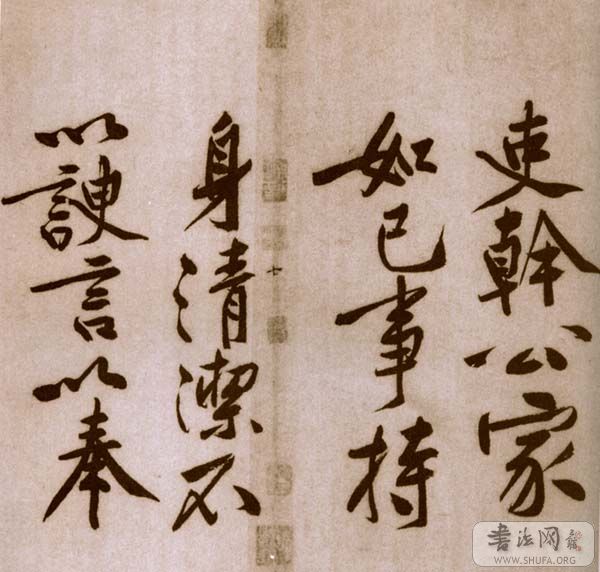 吏幹公家
如己事持
身清潔不
以諛言以奉
書法网
WWW.SHUFA.ORG